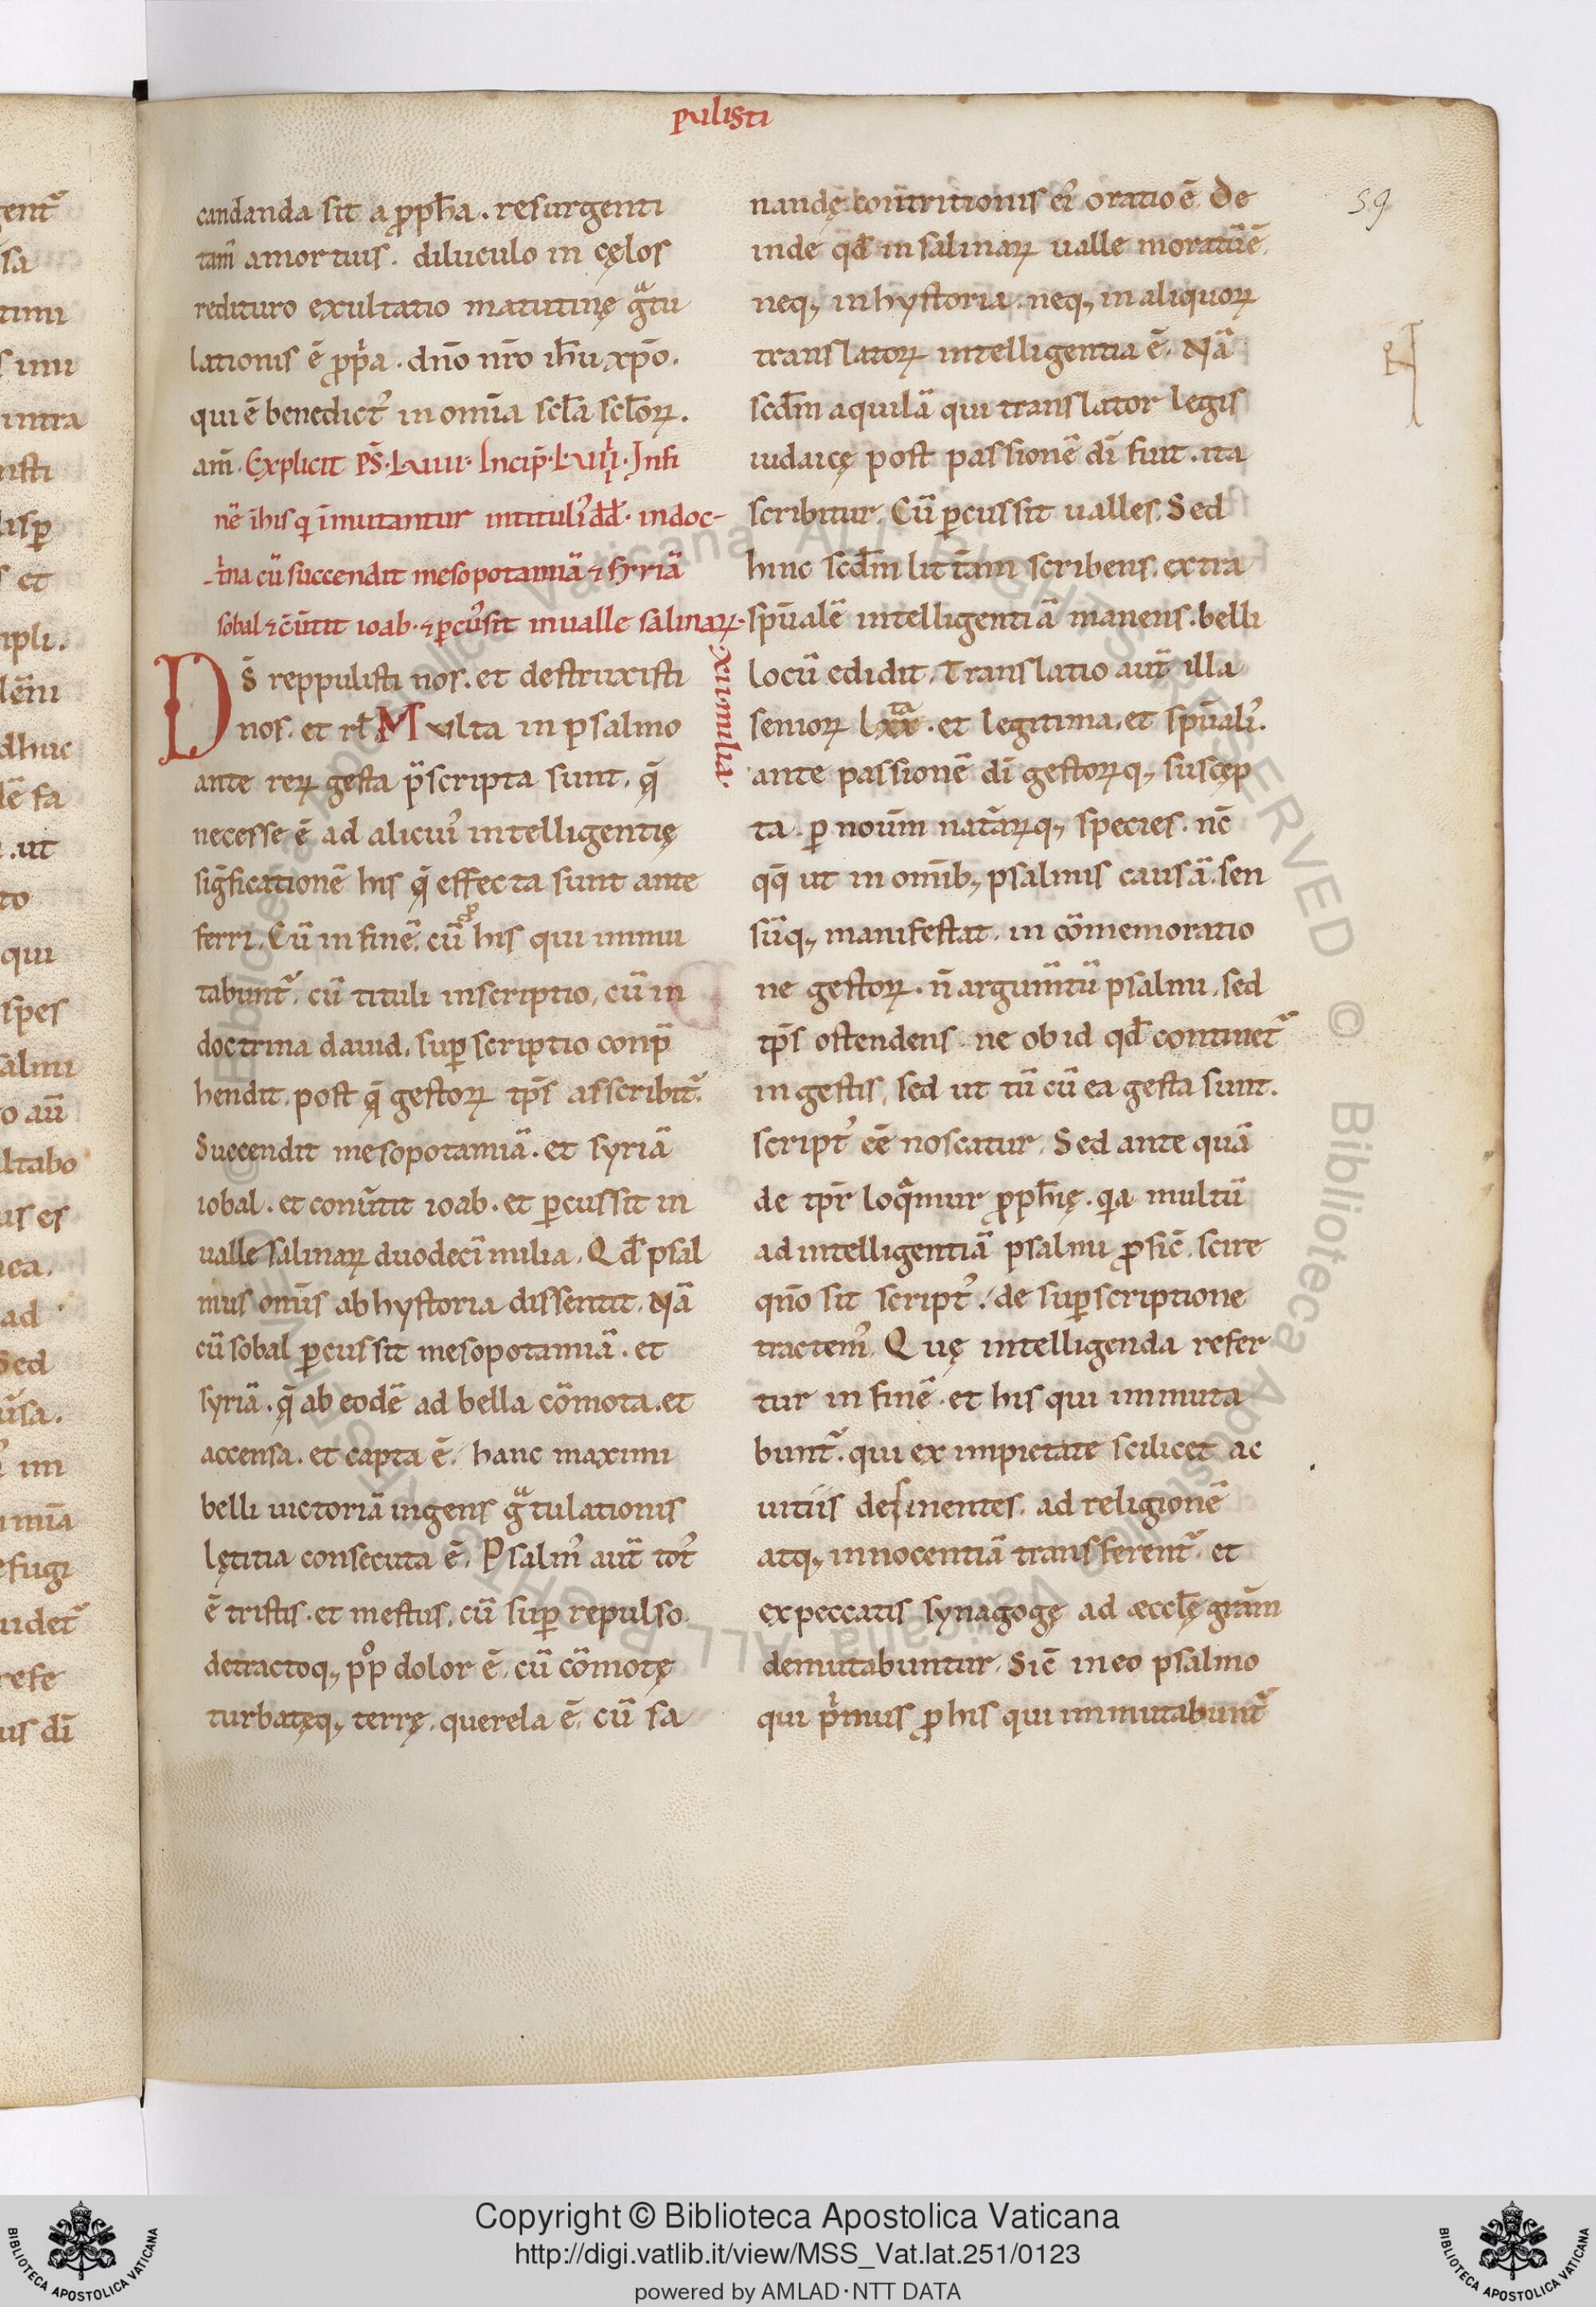 pulisti
candanda sit a ꝓph̄a . resurgenti
tam̄ a mortuis . diluculo in cęlos
redituro exultatio matutinę gᵃtu
lationis ē ꝓpⁱa . dn̄o nr̄o ih̄u xp̄o .
qui ē benedict᾽ in om̄ia scl̄a scl̄oꝝ .
am̄ . Explicit PS̄ . LVIII . Incip̄ . LVIIII . In fi
nē ī his q̄ īmutantur in tituli᾽ dd̄ . in doc-
-tⁱna cū succendit mesopotamiā ⁊ siriā
sobal ⁊ c̄ūtit ioab . ⁊ ꝑcu᾽sit in ualle salinaꝝ .
xii milia
DS̄ reppulisti nos . et destruxisti
nos . et rł Multa in psalmo
ante reꝝ gesta p̄scripta sunt . q̄
necesse ē ad alicui᾽ intelligentię
siḡficationē his q̄ effecta sunt ante
ferri . Cū in finē . cū ꝓ his qui immu
tabunt᷑ . cū tituli inscriptio , cū in
doctrina dauid . suꝑ scriptio conp̄
hendit . post q̄ gestoꝝ tp̄s asscribit᷑ .
Succendit mesopotamiā . et syriā
iobal . et conūtit ioab . et ꝑcussit in
ualle salinaꝝ duodecī milia . Qd̄ psal
mus om̄is ab hystoria dissentit . Nā
cū sobal ꝑcussit mesopotamiā . et
syriā . q̄ ab eodē ad bella cōmota . et
accensa . et capta ē . hanc maximi
belli uictoriā ingens gᵃtulationis
lętitia consecuta ē . Psalm᾽ aūt tot᾽
ē tristis . et mestus . cū suꝑ repulso
detractoq; pºp dolor ē . cū cōmotę
turbatęq; terrę . querela ē . cū sa
nandę contritionis ei᾽ oratio ē . De
inde qd̄ in salinaꝝ ualle moratū ē .
neq; in hystoria . neq; in aliquoꝝ
translatoꝝ intelligentia ē . Nā
scd̄m aquilā qui translator legis
iudaicę post passionē dī fuit . ita
scribitur . Cū ꝑcussit ualles . Sed
hinc scd̄m litt̄am scribens . extra
sp̄ualē intelligentiā manens . belli
locū edidit . Translatio aūt illa
senioꝝ lxxᵗᵃ . et legitima . et sp̄uali᾽ .
ante passionē dī gestoꝝq; suscęp
ta . ꝑ noūm nat̄aꝝq; species . nc̄
qq̄ ut in om̄ib; psalmis causā . sen
sūq; manifestat . in cōmemoratio
ne gestoꝝ . n̄ argum̄tū psalmi , sed
tp̄s ostendens . ne ob id qd̄ continet᷑
in gestis , sed ut tū cū ea gesta sunt .
script᾽ eē noscatur . Sed ante quā
de tpr̄ loqᵃmur ꝓph̄ię . qⁱa multū
ad intelligentiā psalmi ꝓfic̄ . scire
qn̄o sit script᾽ . de suꝑscriptione
tractem᾽ . Quę intelligenda refer
tur in finē . et his qui immuta
bunt᷑ . qui ex impietate scilicet ac
uitiis desinentes . ad religionē
atq; innocentiā transferent᷑ . et
ex peccatis synagogę ad æccl̄ę gr̄am
demutabuntur . Sic̄ in eo psalmo
qui pⁱmus ꝓ his qui immutabunt᷑
59
Copyright © Biblioteca Apostolica Vaticana
http://digi.vatlib.it/view/MSS_Vat.lat.251/0123
powered by AMLAD·NTT DATA
BIBLIOTECA APOSTOLICA VATICANA
BIBLIOTECA APOSTOLICA VATICANA